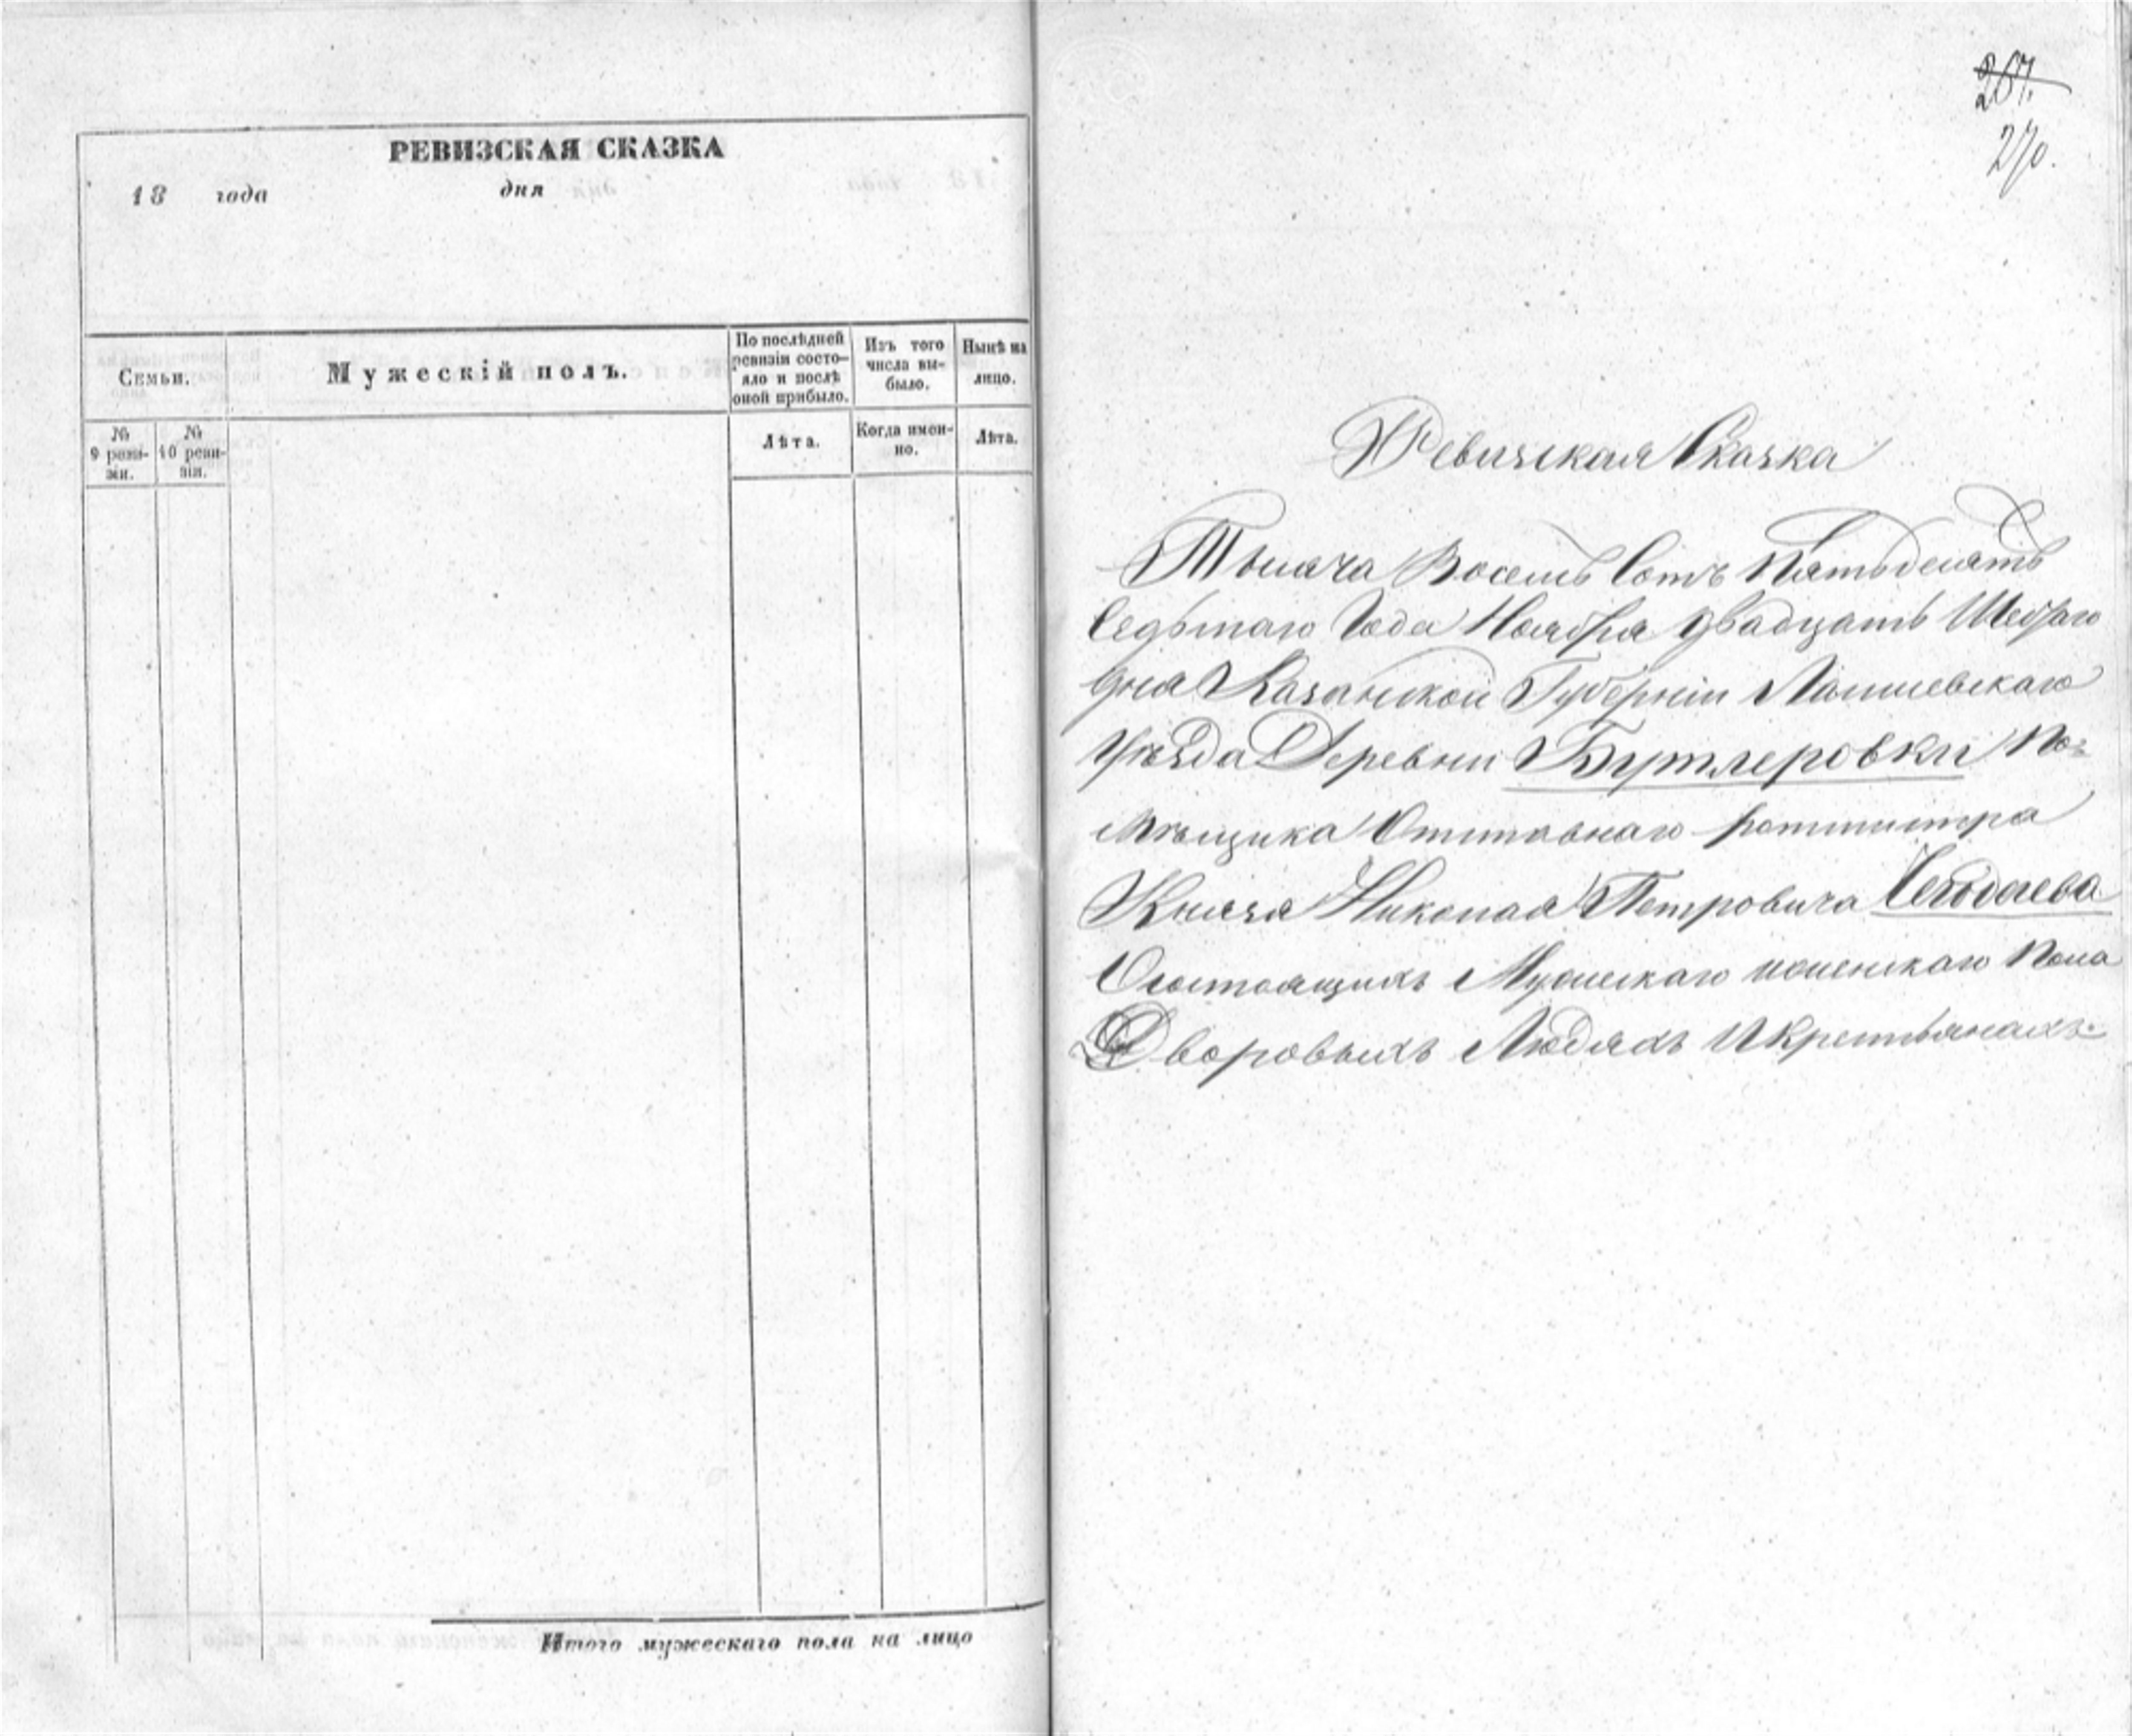 РЕВИЗСКАЯ СКАЗКА
18 года дня
Семьи.
Мужескій полъ.
По послѣдней
ревизіи состо-
яло и послѣ
оной прибыло.
Изъ того
числа вы-
было.
Нынѣ на
лицо.
№
9 реви-
зіи.
№
10 реви-
зіи.
Лѣта.
Когда имен-
но.
Лѣта.
Итого мужескаго пола на лицо
267.
270.
Ревизская Сказка
Тысяча Восемь Сотъ Пятьдесятъ
Седьмаго Года Ноября двадцать Шестаго
дня Казанской Губерніи Лаишевскаго
Уѣзда Деревни Бутлеровки По=
мѣщика Отставнаго ротмистра
Князя Николая Петровича Чегодаева
О состоящихъ Мужескаго иженскаго Пола
Дворовыхъ Людяхъ Икрестьянахъ.